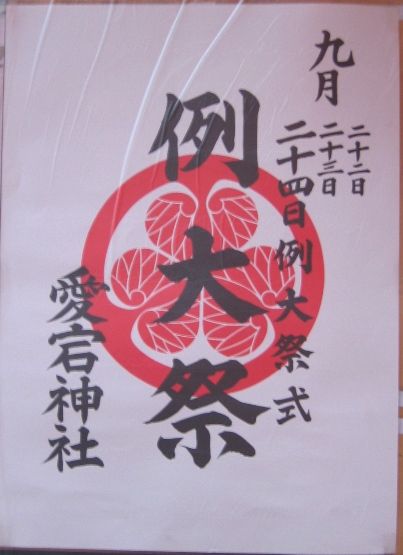 九月
二十二日
二十三日
二十四日例大祭式
例大祭
愛宕神社